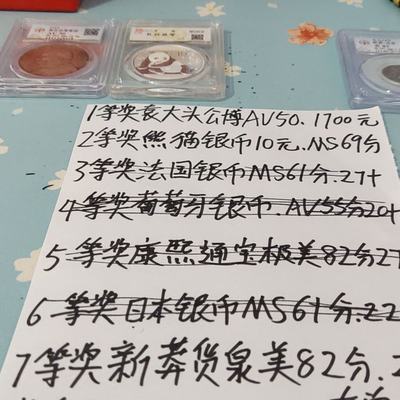 1等奖袁大头公博AU50.1700元
2等奖熊猫银币10元.MS69分
3等奖法国银币MS61分.27+
4等奖葡萄牙银币.AV55分20+
5等奖康熙通宝极美82分2
6等奖日本银币MS61分.22
7等奖新莽货泉美82分.2